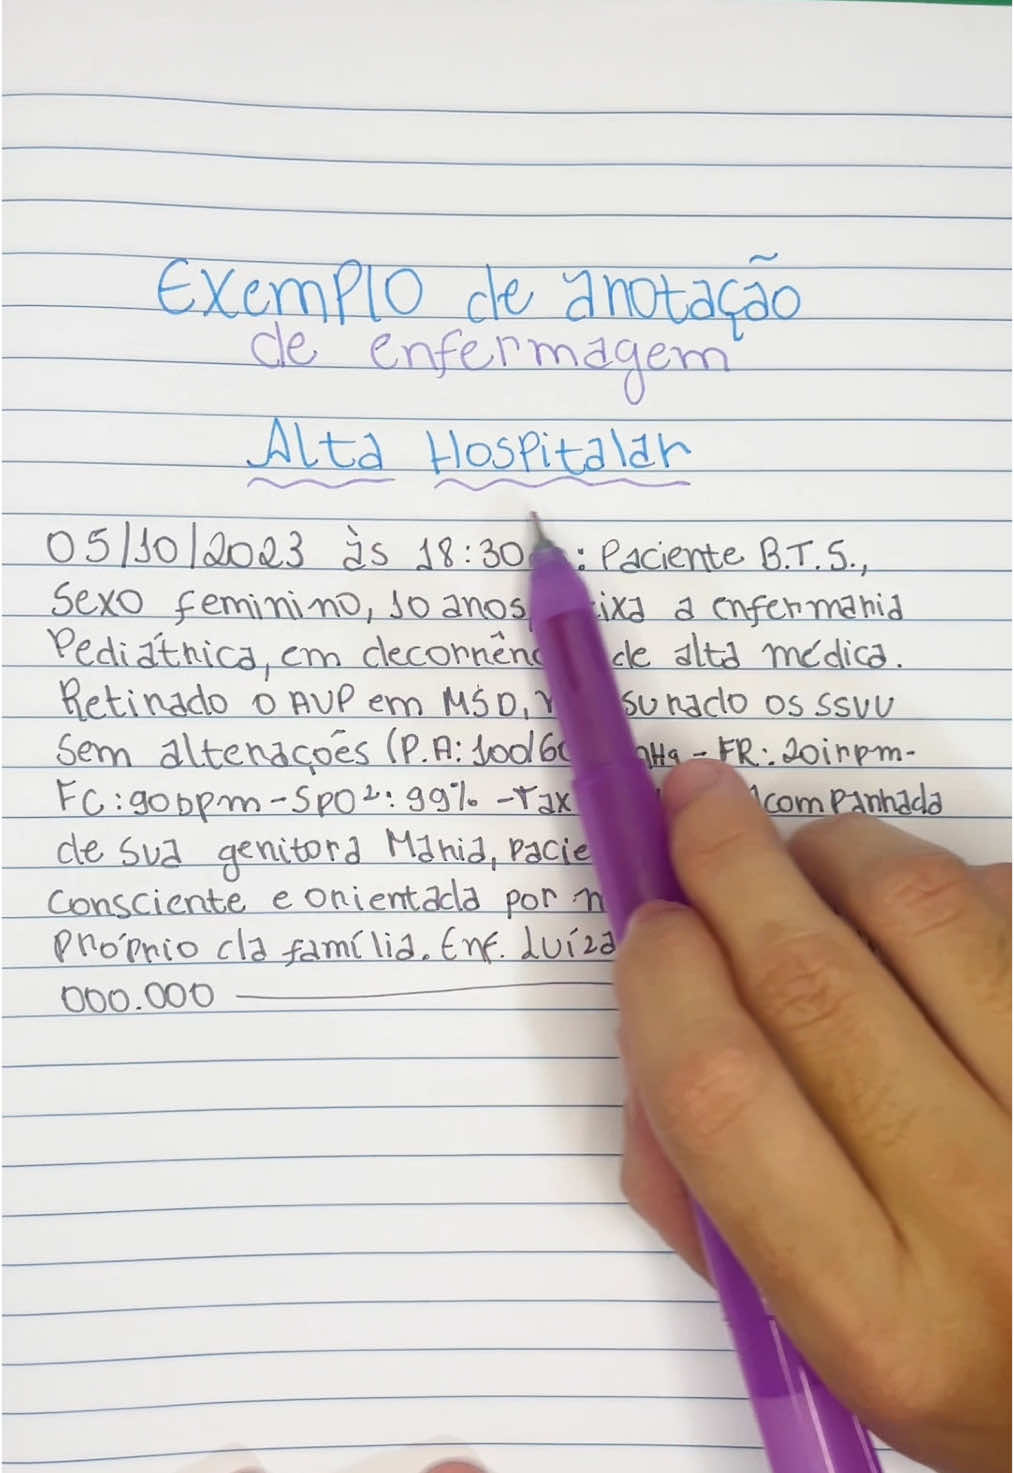 Exemplo de anotação
de enfermagem
Alta Hospitalar
05/10/2023 às 18:30 : Paciente B.T.S.,
Sexo feminino, 10 anos, a enfermaria
Pediátrica, em de alta médica.
Retirado o AVP em MSD, os SSVV
Sem alterações (P.A: - FR: 20irpm-
FC: 90bpm - SpO²: 99% - Tax companhada
de sua genitora Maria,
Consciente e orientada por
próprio da família. Enf. Luíza
000.000